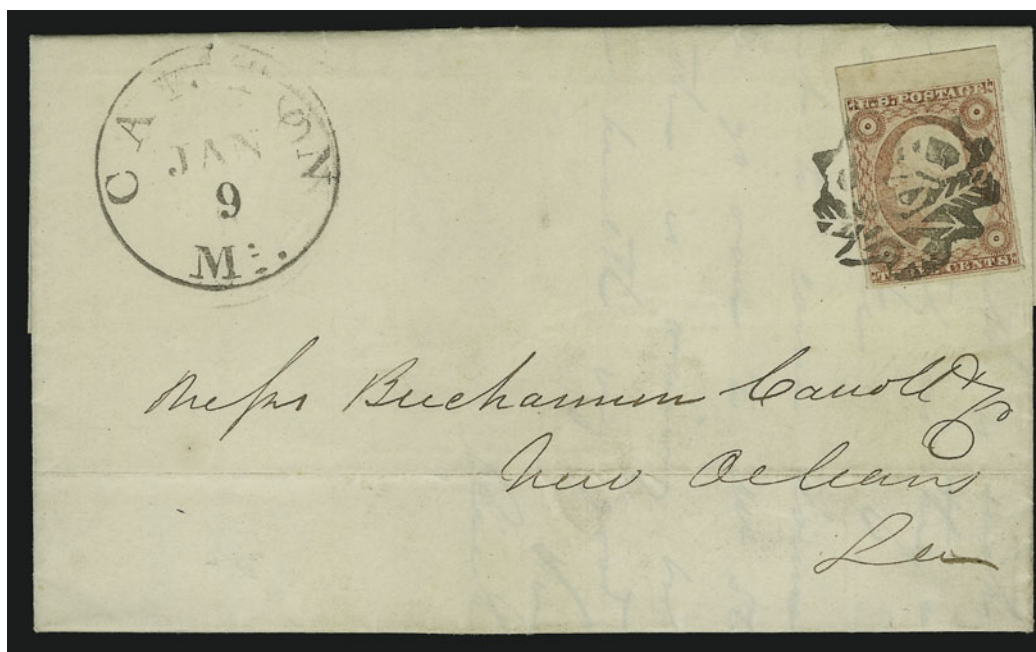 CANTON
JAN
9
Mi.
U.S. POSTAGE
THREE CENTS
Messrs Buchannon Carroll & Co
New Orleans
La